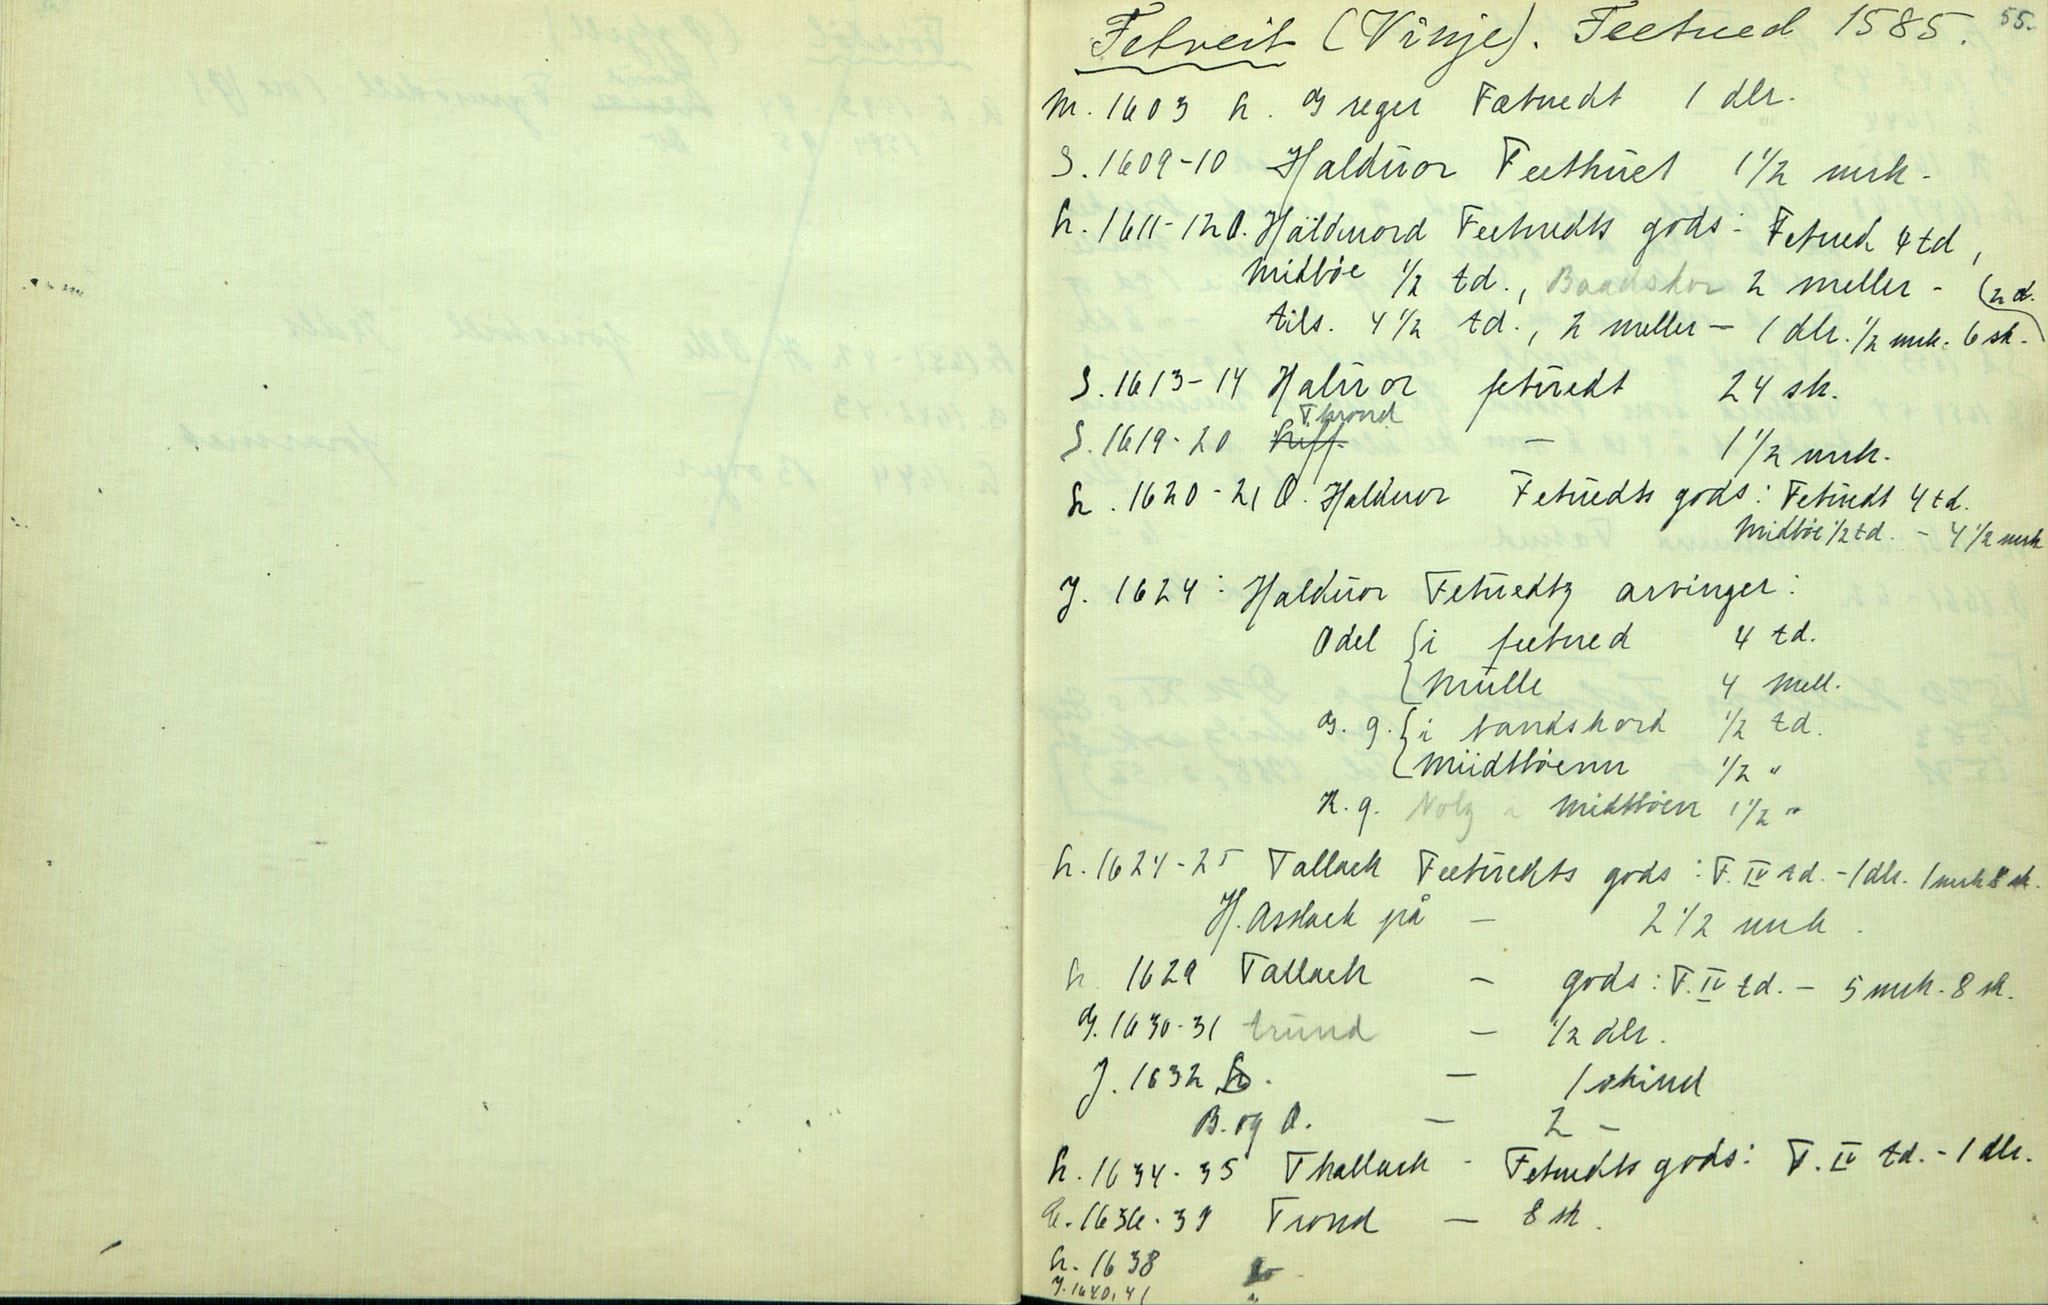 55.
Fetveit (Vinje). Feetued 1585.
M. 1603 h. Greger Fætuedt 1 dlr.
S. 1609-10 Halduor Feethuet 1 1/2 mrk.
h. 1611-12 O. Halduord Feetuedts gods: Fetued 4 td,
Midbøe 1/2 td., Baadskor 2 meller - (2 d.
tils. 4 1/2 td., 2 meller - 1 dlr. 1/2 mrk. 6 sk.
S. 1613-14 Haluor fetuedt 24 sk.
Thrond
S. 1619-20 — 1 1/2 mrk.
h. 1620-21 O. Halduor Fetuedts gods: Fetuedt 4 td.
Midbøe 1/2 td. - 4 1/2 mrk
J. 1624: Halduor Fetuedtz arvinger:
Odel { i feetued 4 td.
Mulle 4 mell.
B. g. { i baadskord 1/2 td.
Miidtbøenn 1/2 "
K. g. Nolz i Midtbøen 1 1/2 "
h. 1624-25 Tallack Feetuedts gods: F. IV td. - 1 dlr. 1 mrk 8 sk.
H. Asslack på — 2 1/2 mrk.
h. 1629 Tallack — gods: F. IV td. - 5 mrk. 8 sk.
G. 1630-31 trund — 1/2 dlr.
J. 1632 — 1 skind
B. og O. — 2 —
h. 1634-35 Thallack - Fetuedts gods: F. IV td. - 1 dlr.
1636-37 Trond — 8 sk.
h. 1638
J. 1640, 41 "